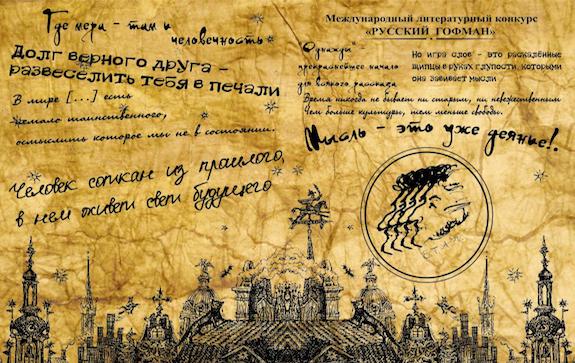 Где мера – там и
человечность
Долг верного друга –
развеселить тебя в печали
В мире [...] есть
немало таинственного,
осмыслить которое мы не в состоянии.
Человек соткан из прошлого,
в нем живет свет будущего
Международный литературный конкурс
«РУССКИЙ ГОФМАН»
"Однажды"
прекраснейшее начало
для всякого рассказа
Но игра слов - это раскалённые
щипцы в руках глупости, которыми
она завивает мысли
Время никогда не бывает ни старым, ни невежественным
Чем больше культуры, тем меньше свободы.
Мысль – это уже деяние!.